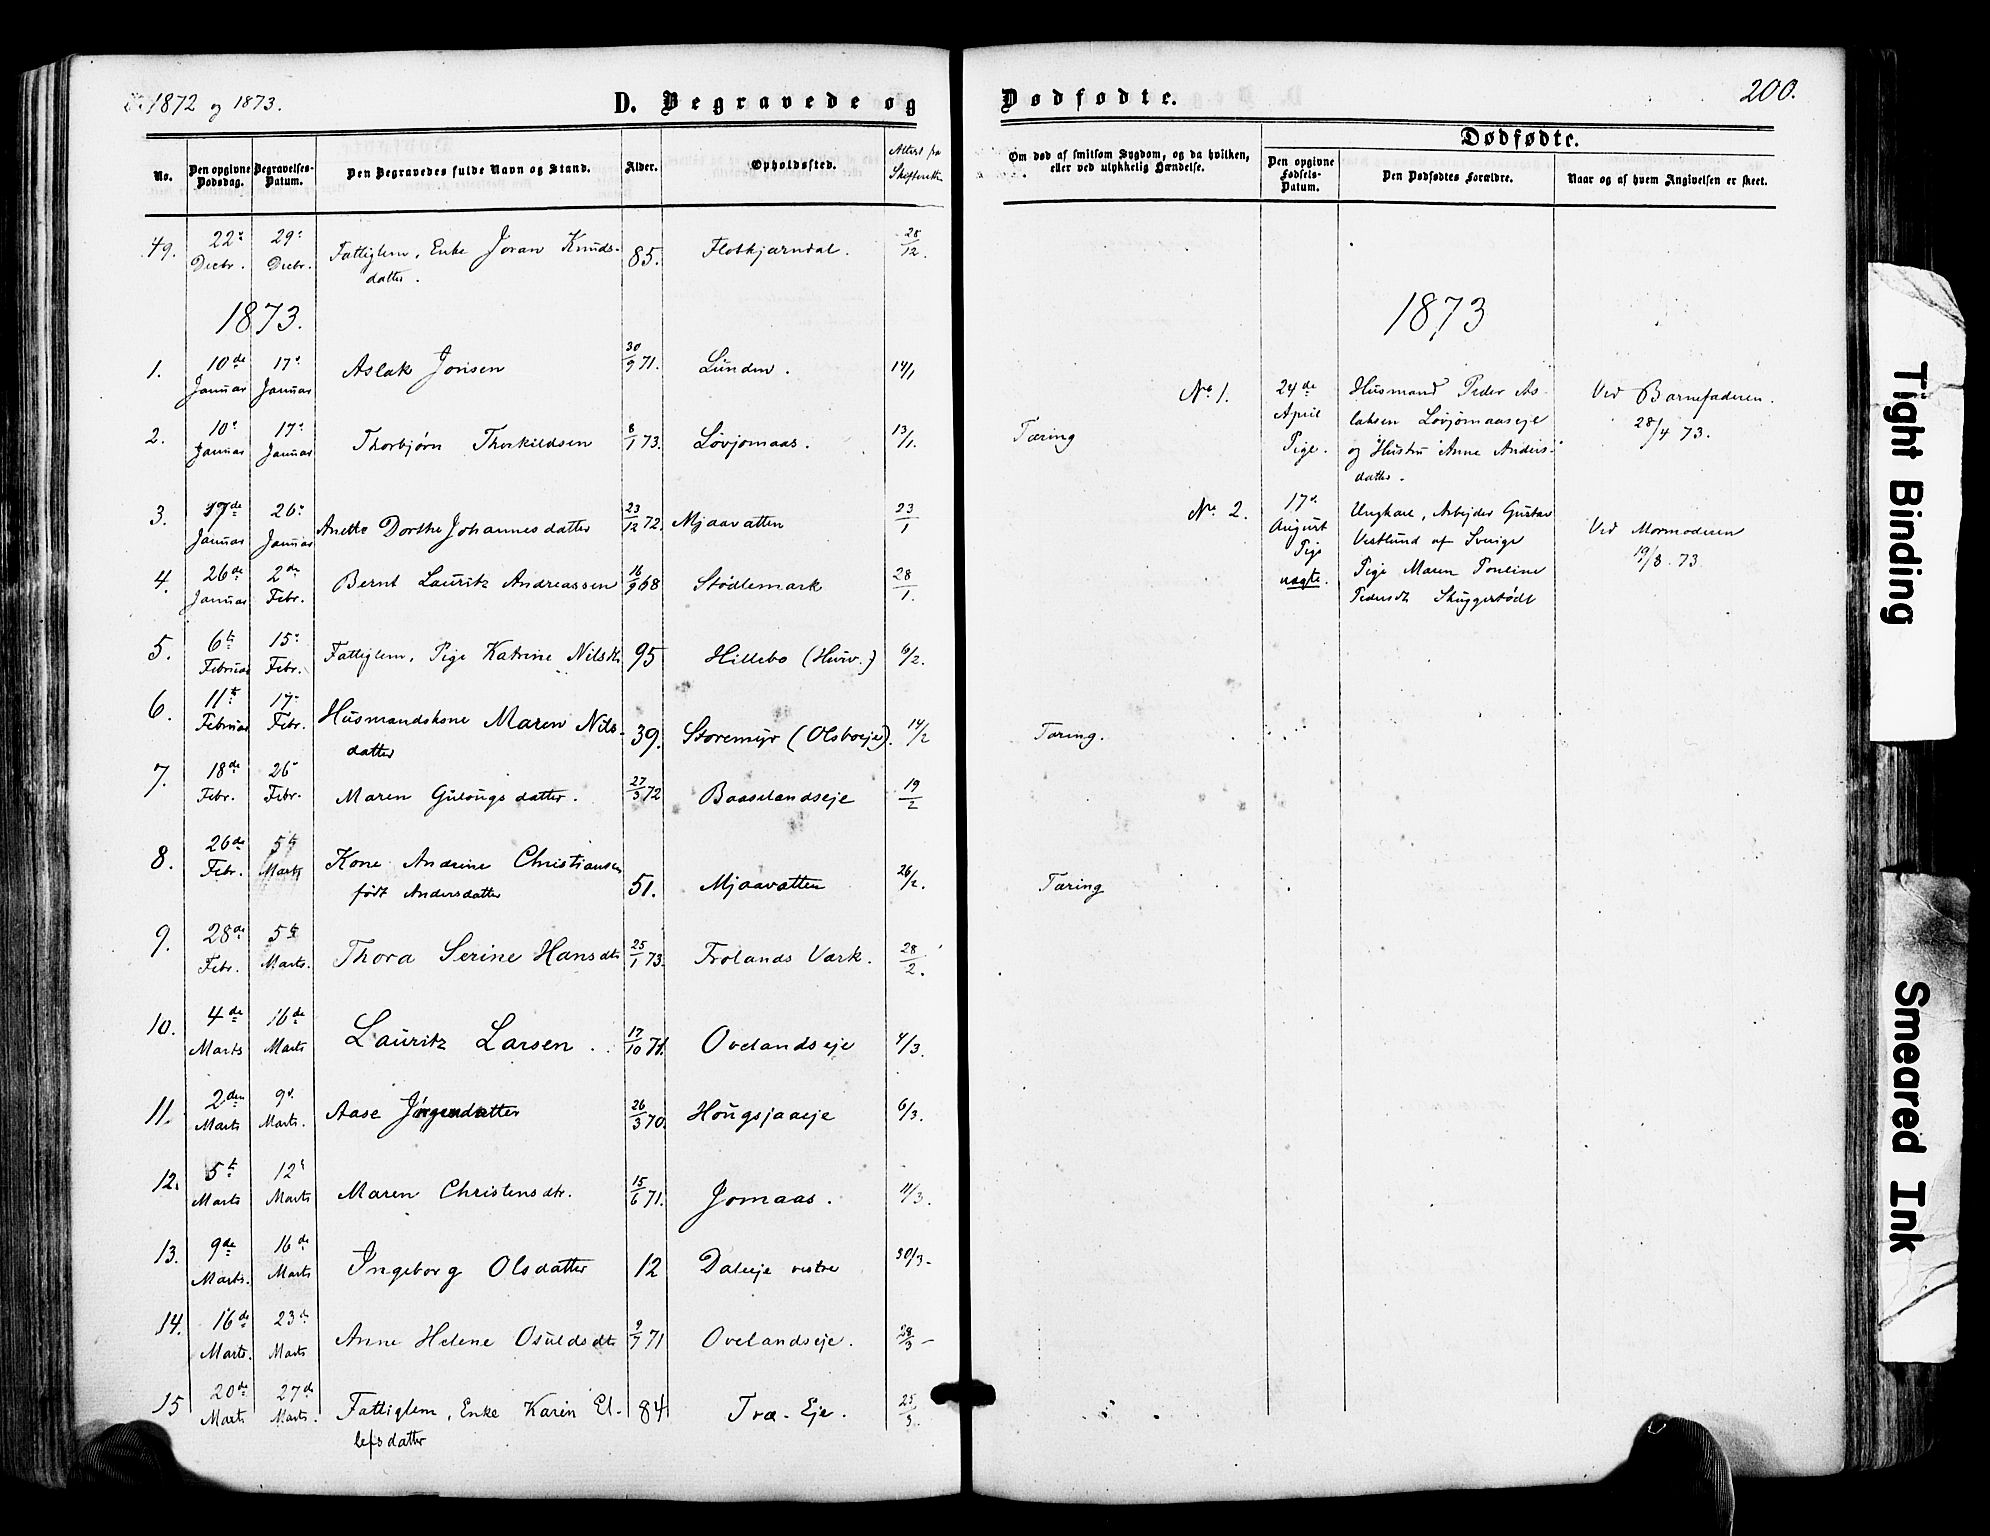 1872 og 1873.
D. Begravede og
No.
Den opgivne Dødsdag.
Begravelses-Datum.
Den Begravedes fulde Navn og Stand.
Alder.
Opholdssted.
Attest fra Skifteretten
49. 22 Decbr. 29 Decbr. Fattiglem, Enke Joran Knuds-
datter. 85. Flotkjærndal. 28/12.
1873.
1. 10de Januar 17 Januar Aslak Jonsen 30/9 71. Lunden. 14/1
2. 10 Januar 17 Januar Thorbjørn Thorkildsen 8/1 73. Løvjomaas. 13/1.
3. 17de Januar 26 Januar Anette Dorthe Johannesdatter 23/12 72. Mjaavatten 23/1
4. 26de Januar 2den Febr. Bernt Lauritz Andreassen 16/9 68 Stødlemark 28/1.
5. 6te Februar 15 Febr. Fattiglem, Pige Katrine Nilsdtr 95 Hillebo (Hurv.) 6/2.
6. 11te Februar 17 Febr. Husmandskone Maren Nils-
datter 39. Storemyr (Olsboeje). 14/2
7. 18de Febr. 26 Febr. Maren Gulougsdatter. 27/3 72 Baaselandseje 19/2
8. 26de Febr. 5te Marts Kone Andrine Christiansen
født Andersdatter 51. Mjaavatten 26/2.
9. 28de Febr. 5te Marts. Thora Serine Hansdtr 25/1 73. Frolands Værk. 28/2.
10. 4de Marts 16de Marts Lauritz Larsen. 17/10 71. Ovelandseje 4/3.
11. 2den Marts 9d Marts. Aase Jörgensdatter 26/3 70. Hougsjaaeje 6/3.
12. 5te Marts 12 Marts Maren Christensdtr. 15/6 71. Jomaas. 11/3.
13. 9de Marts. 16de Marts Ingeborg Olsdatter 12 Daleeje vestre 30/3-
14. 16de Marts. 23de Marts Anne Helene Osuldsdtr 9/7 71 Ovelandseje. 29/3 -
15 20de Marts 27de Marts. Fattiglem, Enke Karen El-
lefsdatter 84 Træ-Eje. 25/3.
Dødfødte.
200.
Om død af smitsom Sygdom, og da hvilken,
eller ved ulykkelig Hændelse.
Dødfødte.
Den opgivne Fødsels-Datum.
Den Dødfødtes Forældre.
Naar og af hvem Angivelsen er skeet.
1873
No 1. 24de April Pige. Husmand Peder As-
laksen Løvjomaaseje
og Hustru Anne Anders-
datter.
Ved Barnefaderen.
28/4 73.
Tæring
No 2. 17d August Pige uægte. Ungkarl, Arbejder Gustav
Vestlund af Sverige
Pige Maren Pouline
Pedersdt Skuggestødt
Ved Mormoderen
19/8. 73
Tæring.
Tæring
Tight Binding
Smeared Ink